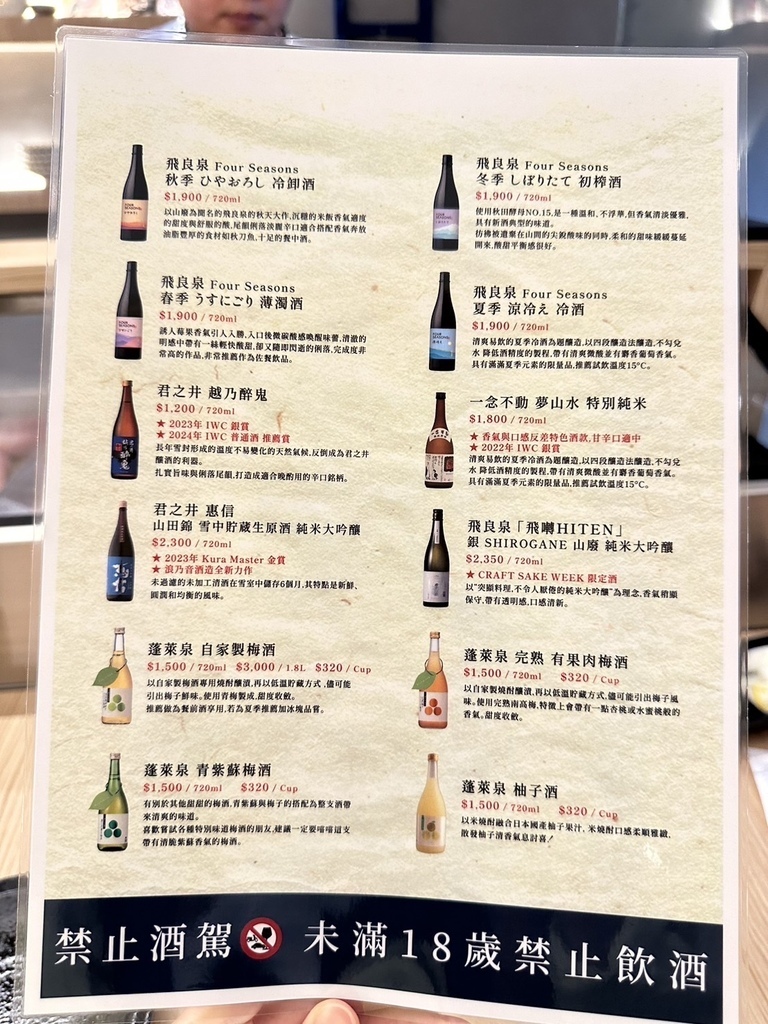 飛良泉 Four Seasons
秋季 ひやおろし 冷卸酒
$1,900 / 720ml
以山廢為聞名的飛良泉的秋天大作,沉穩的米飯香氣適度
的甜度與舒服的酸,尾韻俐落淡麗辛口適合搭配香氣奔放
油脂豐厚的食材如秋刀魚,十足的餐中酒。
飛良泉 Four Seasons
冬季 しぼりたて 初榨酒
$1,900 / 720ml
使用秋田酵母NO.15,是一種溫和、不浮華,但香氣清淡優雅,
具有新酒典型的味道。
彷彿被遺棄在山間的尖銳酸味的同時,柔和的甜味緩緩蔓延
開來,酸甜平衡感很好。
飛良泉 Four Seasons
春季 うすにごり 薄濁酒
$1,900 / 720ml
誘人莓果香氣引人入勝,入口後微碳酸感喚醒味蕾,清澈的
明感中帶有一絲輕快酸甜,卻又隨即閃逝的俐落,完成度非
常高的作品,非常推薦作為佐餐飲品。
飛良泉 Four Seasons
夏季 涼冷え 冷酒
$1,900 / 720ml
清爽易飲的夏季冷酒為題釀造,以四段釀造法釀造,不勾兌
水 降低酒精度的製程,帶有清爽微酸並有麝香葡萄香氣。
具有滿滿夏季元素的限量品,推薦試飲溫度15°C。
君之井 越乃醉鬼
$1,200 / 720ml
★ 2023年 IWC 銀賞
★ 2024年 IWC 普通酒 推薦賞
長年雪封形成的溫度不易變化的天然氣候,反倒成為君之井
釀酒的利器。
扎實旨味與俐落尾韻,打造成適合晚酌用的辛口銘柄。
一念不動 夢山水 特別純米
$1,800 / 720ml
★ 香氣與口感反差特色酒款,甘辛口適中
★ 2022年 IWC 銀賞
清爽易飲的夏季冷酒為題釀造,以四段釀造法釀造,不勾兌
水 降低酒精度的製程,帶有清爽微酸並有麝香葡萄香氣。
具有滿滿夏季元素的限量品,推薦試飲溫度15°C。
君之井 惠信
山田錦 雪中貯藏生原酒 純米大吟釀
$2,300 / 720ml
★ 2023年 Kura Master 金賞
★ 浪乃音酒造全新力作
未過濾的未加工清酒在雪室中儲存6個月,其特點是新鮮、
圓潤和均衡的風味。
飛良泉「飛囀HITEN」
銀 SHIROGANE 山廢 純米大吟釀
$2,350 / 720ml
★ CRAFT SAKE WEEK 限定酒
以"突顯料理,不令人厭倦的純米大吟釀"為理念,香氣稍顯
保守,帶有透明感,口感清新。
蓬萊泉 自家製梅酒
$1,500 / 720ml $3,000 / 1.8L $320 / Cup
以自家製梅酒專用燒酎釀漬,再以低溫貯藏方式 ,儘可能
引出梅子鮮味。使用青梅製成,甜度收斂。
推薦做為餐前酒享用,若為夏季推薦加冰塊品嘗。
蓬萊泉 完熟 有果肉梅酒
$1,500 / 720ml $320 / Cup
以自家製燒酎釀漬,再以低溫貯藏方式 ,儘可能引出梅子風
味。使用完熟南高梅,特徵上會帶有一點杏桃或水蜜桃般的
香氣。甜度收斂。
蓬萊泉 青紫蘇梅酒
$1,500 / 720ml $320 / Cup
有別於其他甜甜的梅酒,青紫蘇與梅子的搭配為整支酒帶
來清爽的味道。
喜歡嘗試各種特別味道梅酒的朋友,建議一定要喝喝這支
帶有清脆紫蘇香氣的梅酒。
蓬萊泉 柚子酒
$1,500 / 720ml $320 / Cup
以米燒酎融合日本國產柚子果汁, 米燒酎口感柔順雅緻,
散發柚子清香氣息討喜!
禁止酒駕 未滿18歲禁止飲酒